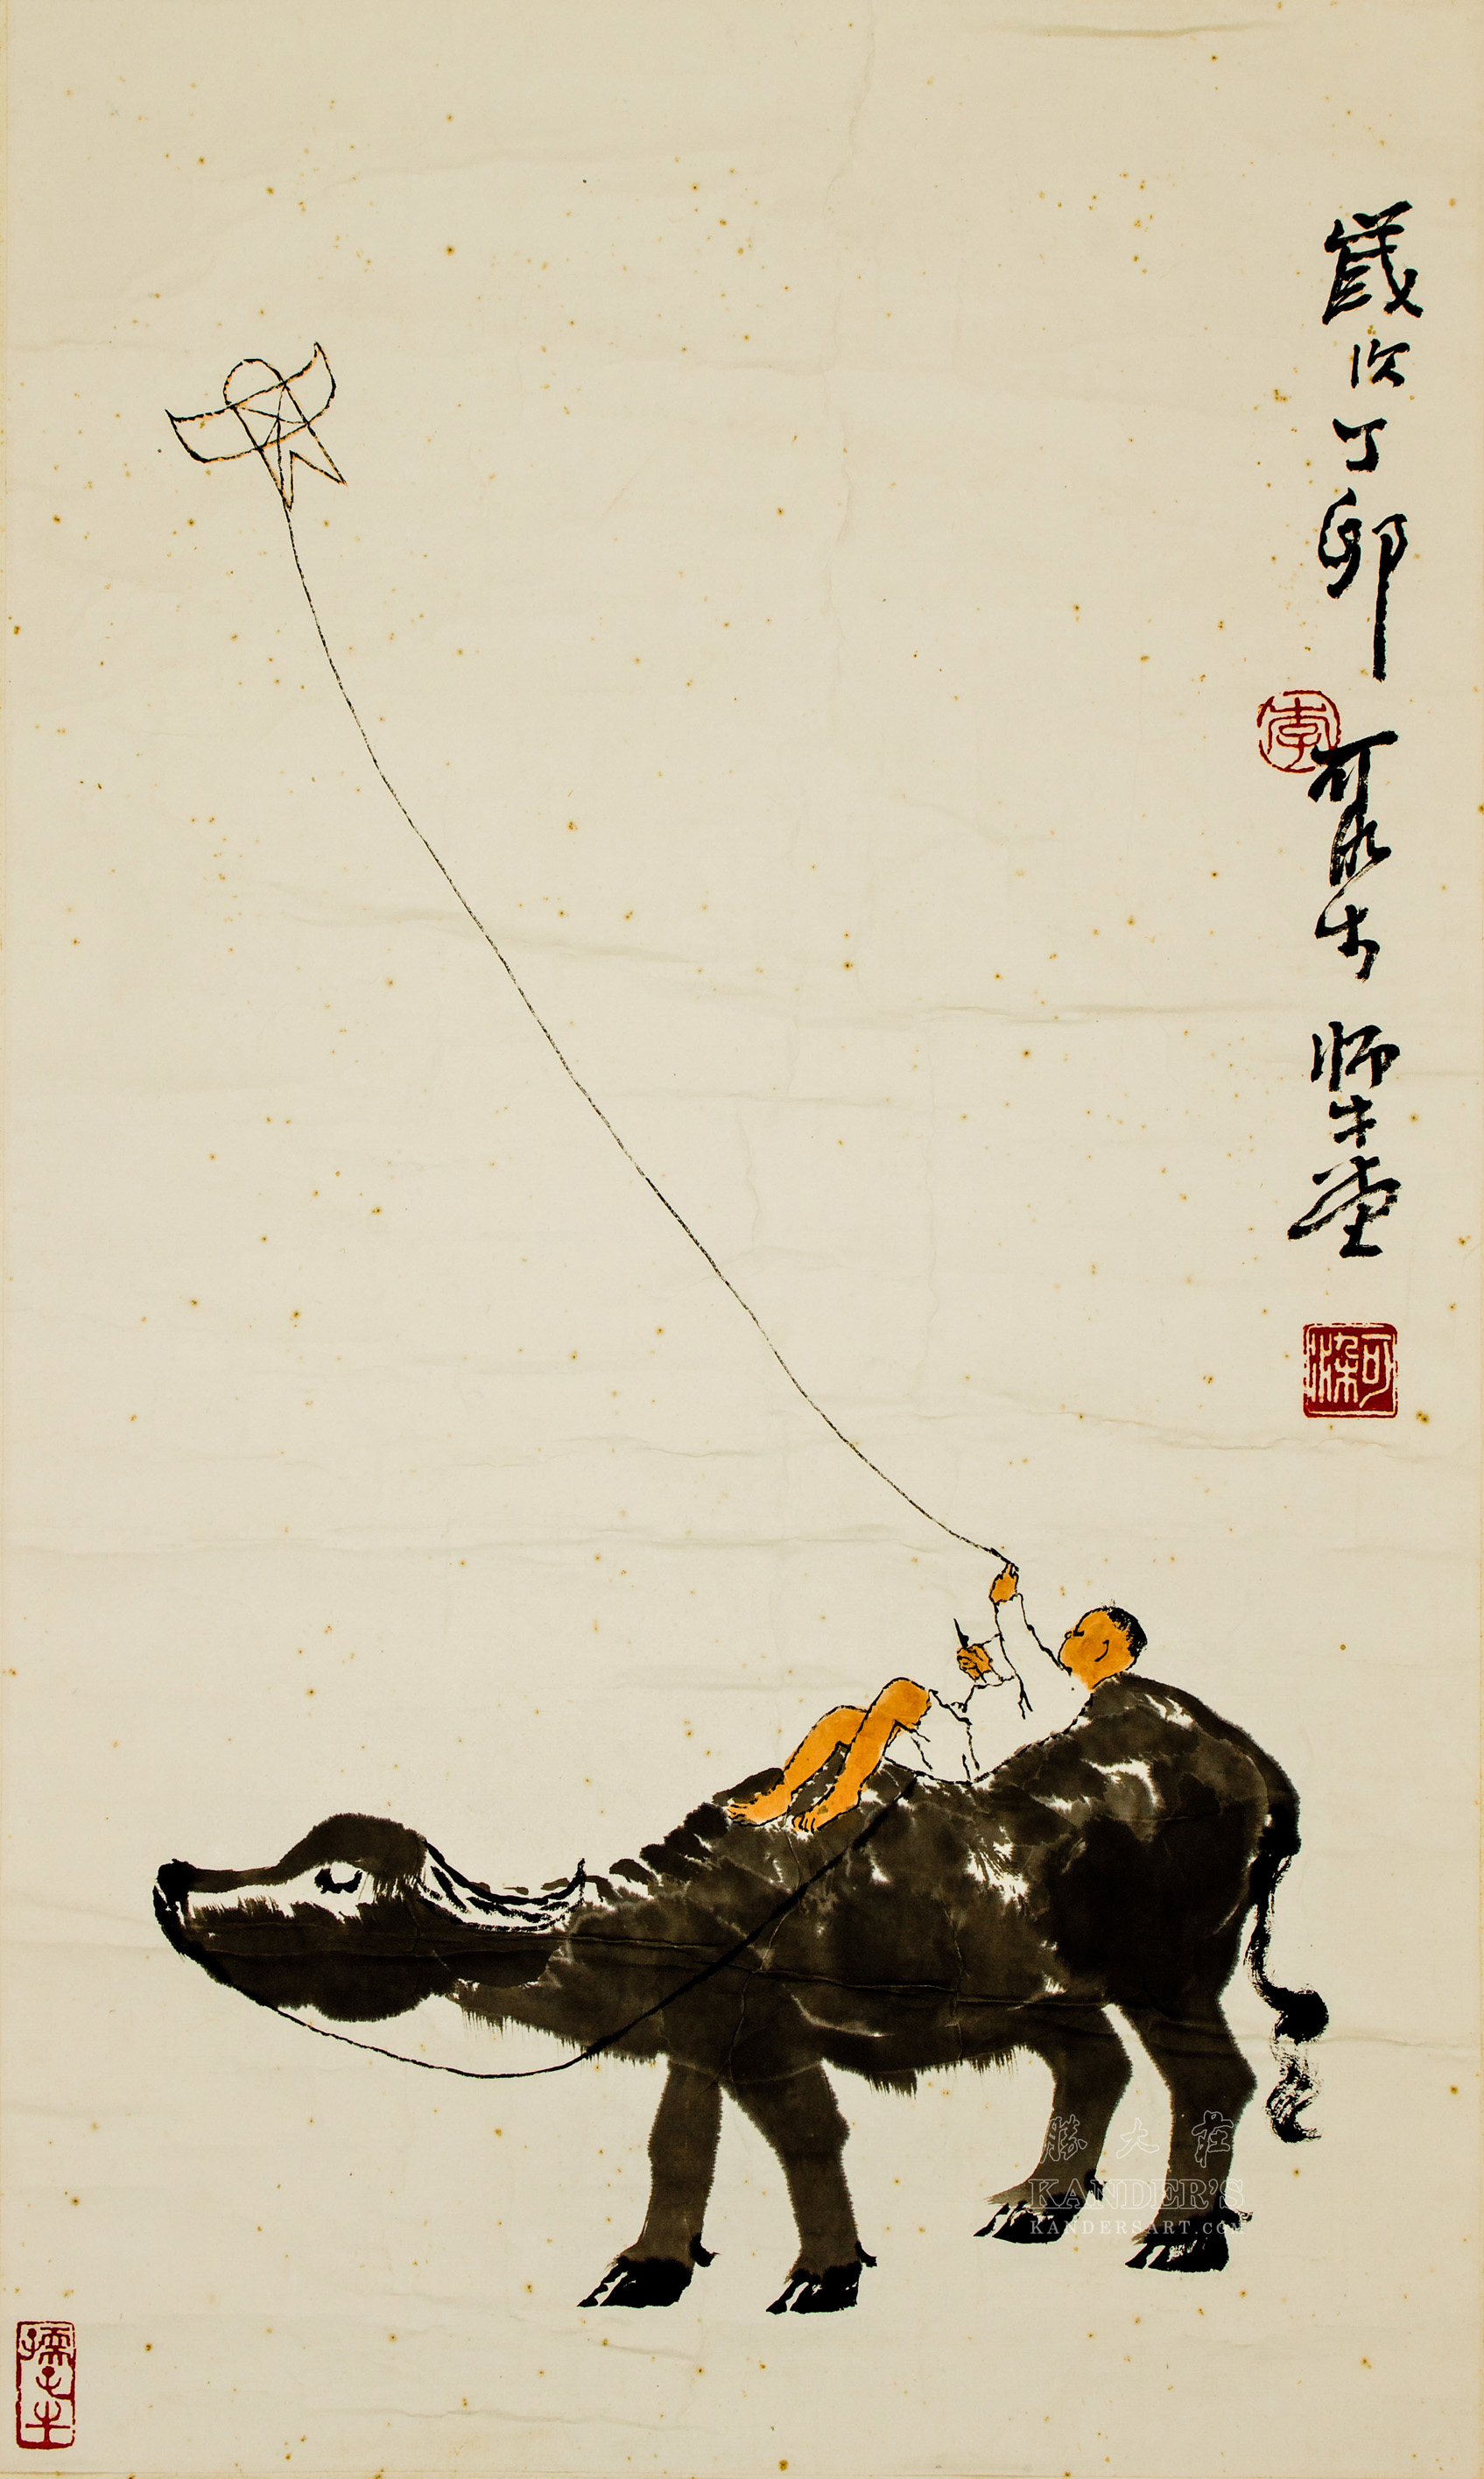 歲次丁卯可染於師牛堂
李
可染
孺子牛
勝大莊
KANDER'S
KANDERSART.COM